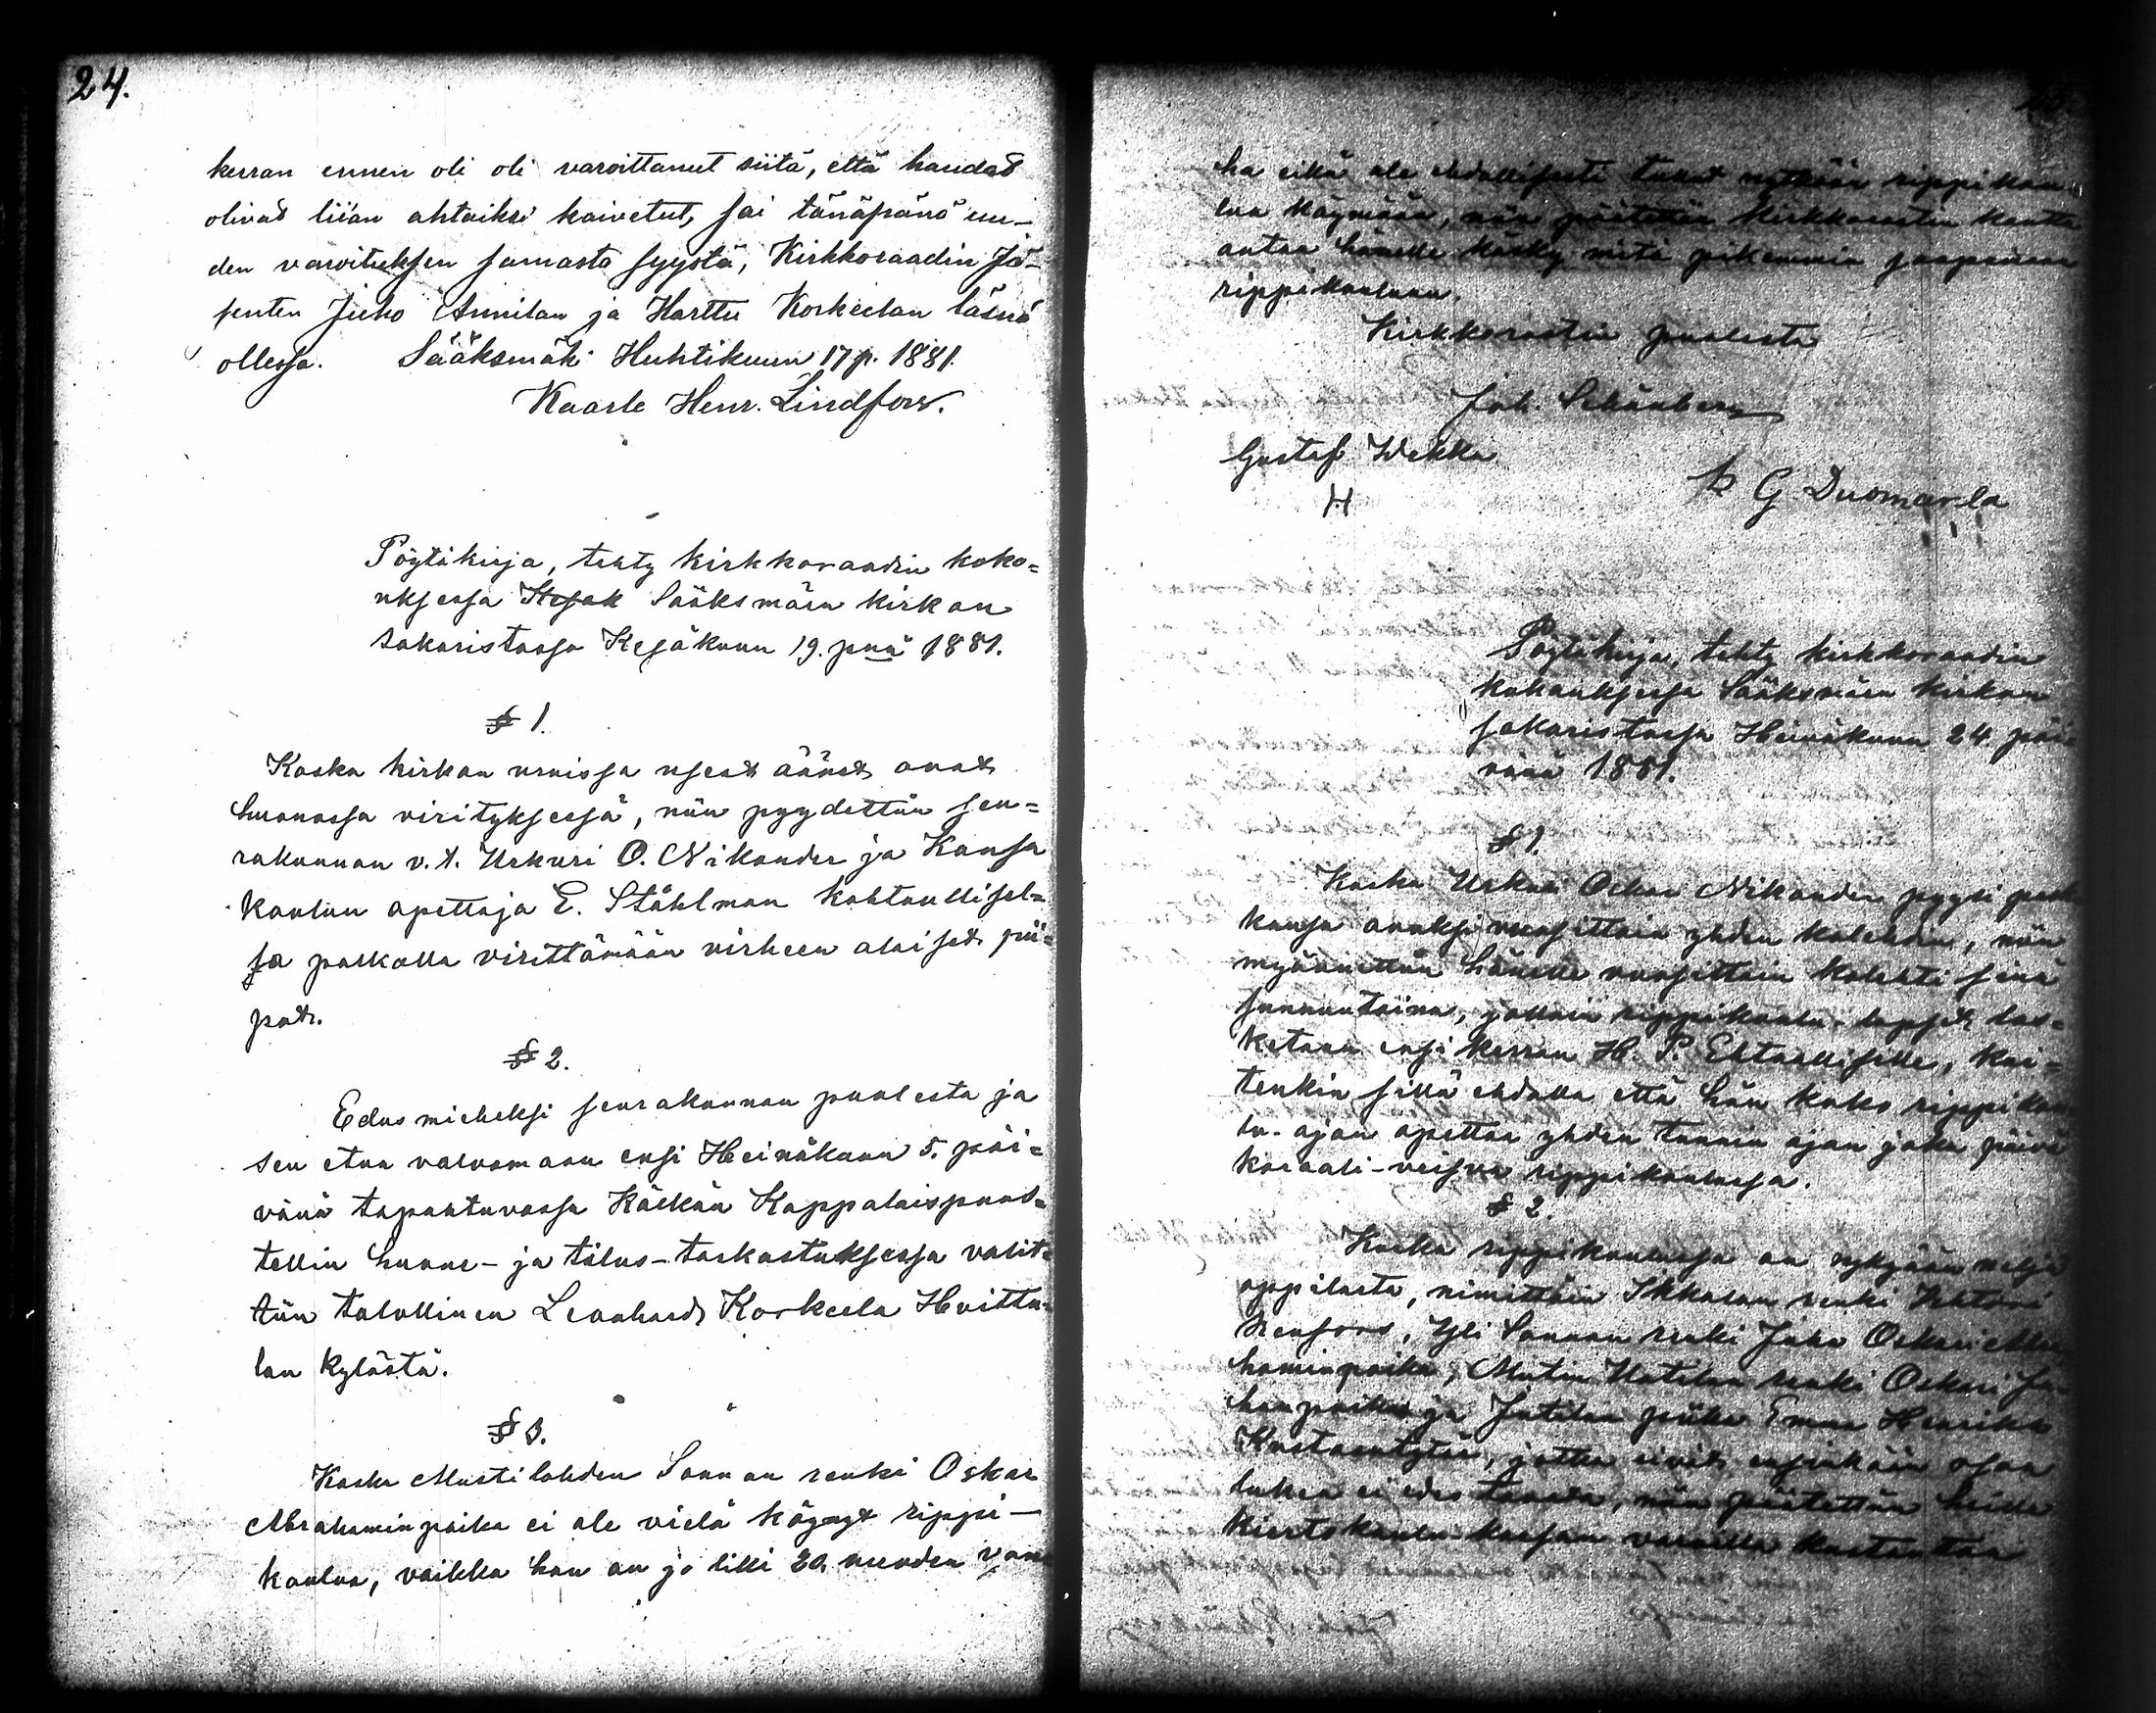 24.
kerran ennen oli oli varoittanut siitä, että haudat
olivat liian ahtaiksi kaivetut, sai tänäpänä uu-
den varoituksen samasta syystä, Kirkkoraadin Jä-
senten Juho Annilan ja Harttu Korkeelan läsnä
ollessa. Sääksmäki Huhtikuun 17 p. 1881.
Kaarle Henr. Lindfors.
Pöytäkirja, tehty kirkkoraadin koko=
uksessa Sääksmäen kirkon
sakaristossa Kesäkuun 19. pnä 1881.
§ 1.
Koska kirkon uruissa useat äänet ovat
huonossa virityksessä, niin pyydettiin seu=
rakunnan v. t. Urkuri O. Nikander ja Kansa
koulun opettaja E. Ståhlman kohtuullisel=
la palkalla virittämään virheen alaiset pii=
put.
§ 2.
Edusmieheksi seurakunnan puolesta ja
sen etua valvomaan ensi Heinäkuun 5. päi=
vänä tapahtuvassa Kappalaispuus=
tellin huone- ja tilus-tarkastuksessa valit=
tiin talollinen Leonhard Korkeela Huittu=
lan kylästä.
§ 3.
Koska Mustilahden Sonnon renki Oskar
Abrahaminpoika ei ole vielä käynyt rippi-
koulua, vaikka hän on jo liki 20 vuoden van
ha eikä ole tullut rippikou=
lua käymään, niin päätettiin Kirkkoraatin kautta
antaa hänelle käsky mitä pikemmin saapumaan
rippikouluun.
Kirkkoraatin puolesta
Joh. Schönberg
Gustaf Uskka
K G Duomarla
Pöytäkirja, tehty kirkkoraadin
kokouksessa Sääksmäen kirkon
sakaristossa Heinäkuun 24 päi
vänä 1881.
§ 1.
Koska Urkuri Oskar Nikander pyysi
avuksi vuosittain yhden kolehdin, niin
myönnettiin hänelle vuosittain kolehti sinä
sunnuntaina, jolloin rippikoulu-lapset las=
ketaan ensi kerran H. P. Ehtoolliselle, kui=
tenkin sillä ehdolla että hän koko rippikou
lu-ajan opettaa yhden tunnin ajan joka päivä
koraali-veisua rippikoulussa.
§ 2.
Koska rippikoulussa on nykyään neljä
oppilasta, nimittäin Ikkalan renki Vihtori
Yli Sonnon renki Juho Oskari
haminpoika, Uotilan renki Oskari Ju
hanpoika ja Jutilan piika Emma Henrika
Kustaantytär, jotka eivät ensinkään osaa
lukea ei edes niin päätettiin heidät
kiertokoulu-kassan varoilla kustantaa